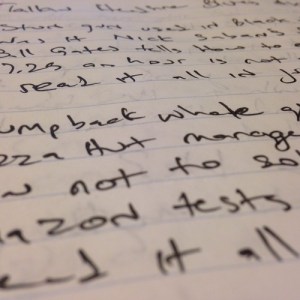 Stun gun used in Black
it Nick Saban's
Bill Gates tells how to
7.25 an hour is not
read it all in j
umpback whale
zza Hut manage
not to
azon tests
ead it all